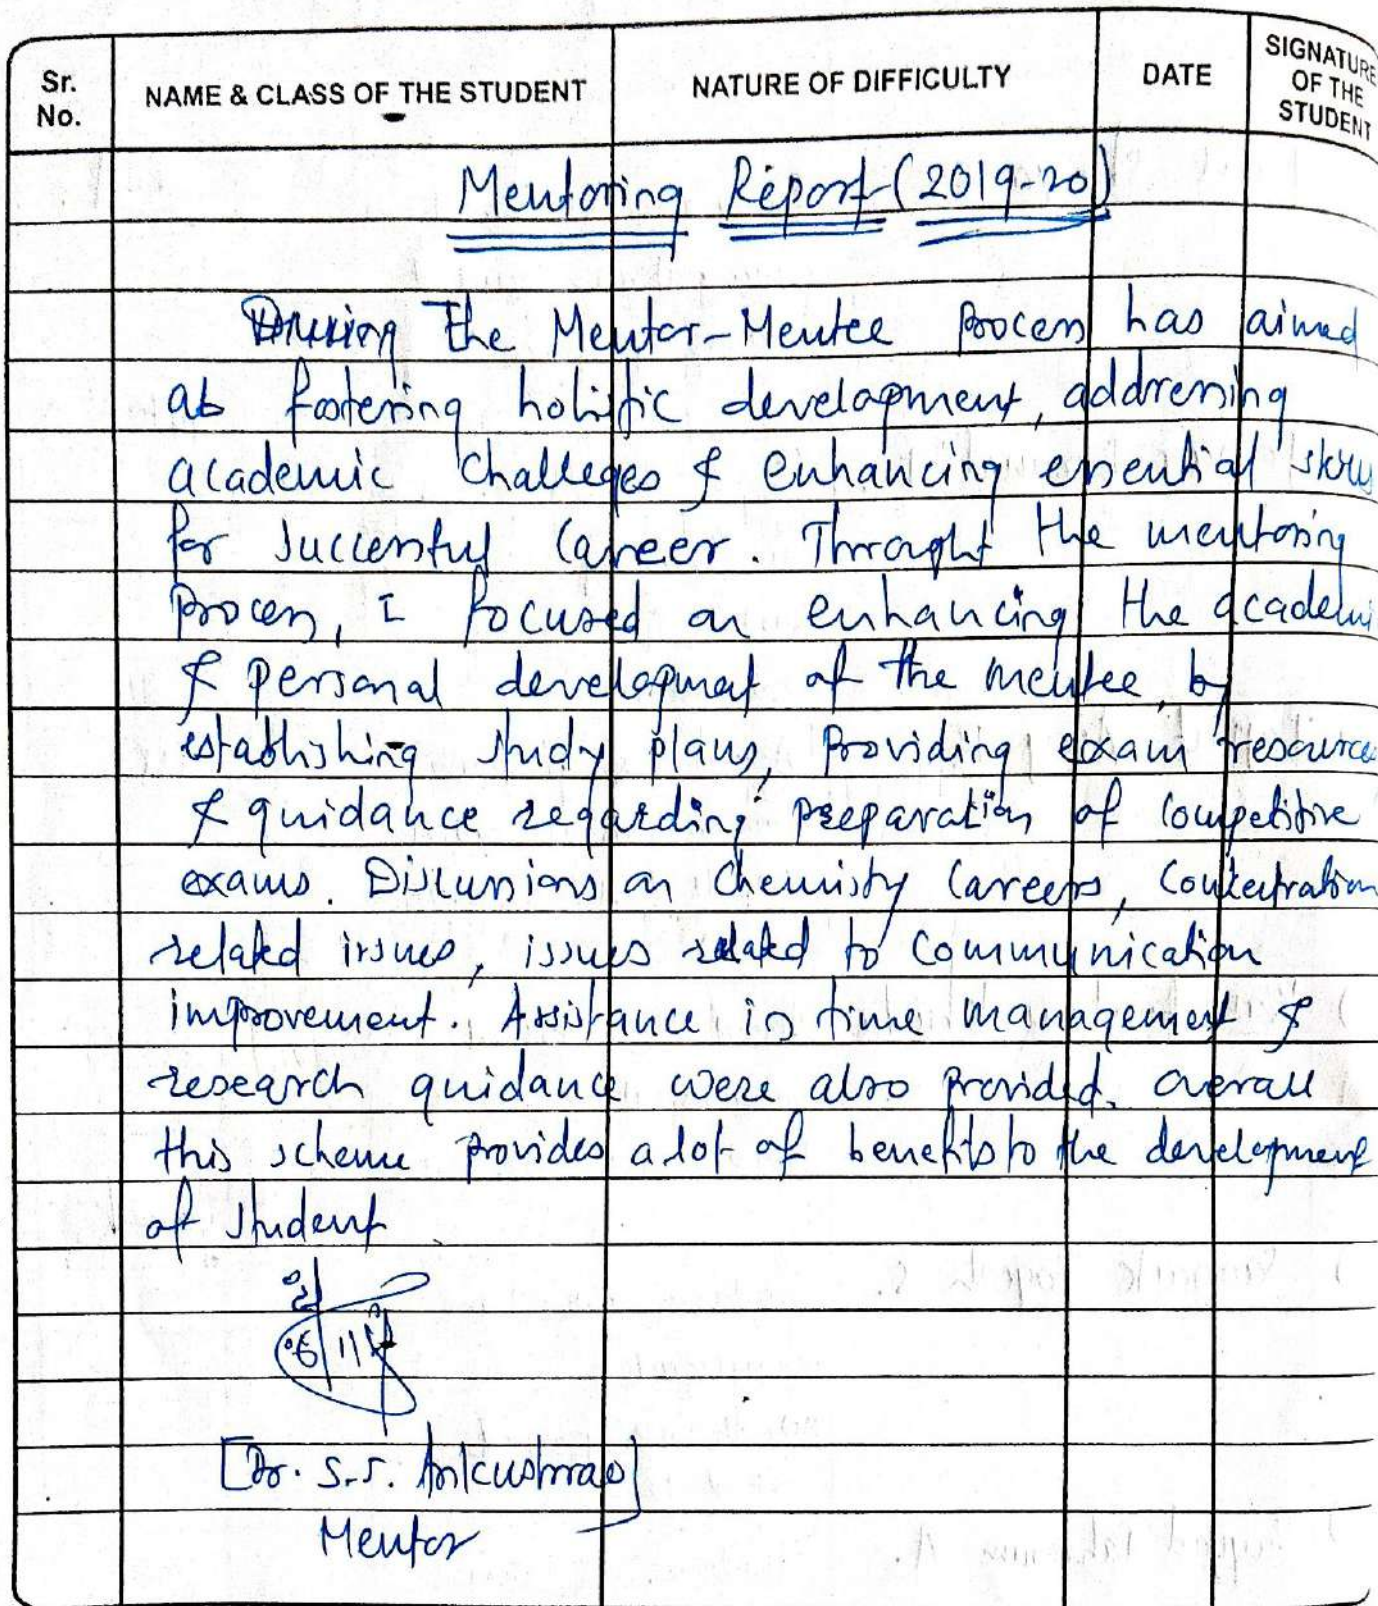 Sr. No. NAME & CLASS OF THE STUDENT NATURE OF DIFFICULTY DATE SIGNATURE OF THE STUDENT
Mentoring Report (2019-20)
The Mentor-Mentee process has aimed
at fostering holistic development, addressing
academic challeges & enhancing essential skills
for successful career. Throught the mentoring
process, I focused on enhancing the academi
& personal development of the mentee, by
establishing study plans, providing exam resources
& guidance regarding preparation of competitive
exams. Discussions on Chemistry Careers, Contentration
related issues, issues related to communication
improvement. Assistance in time management &
research guidance were also provided. overall
this scheme provides a lot of benefits to the development
of student
[Dr. S.S. Ankushrao]
Mentor